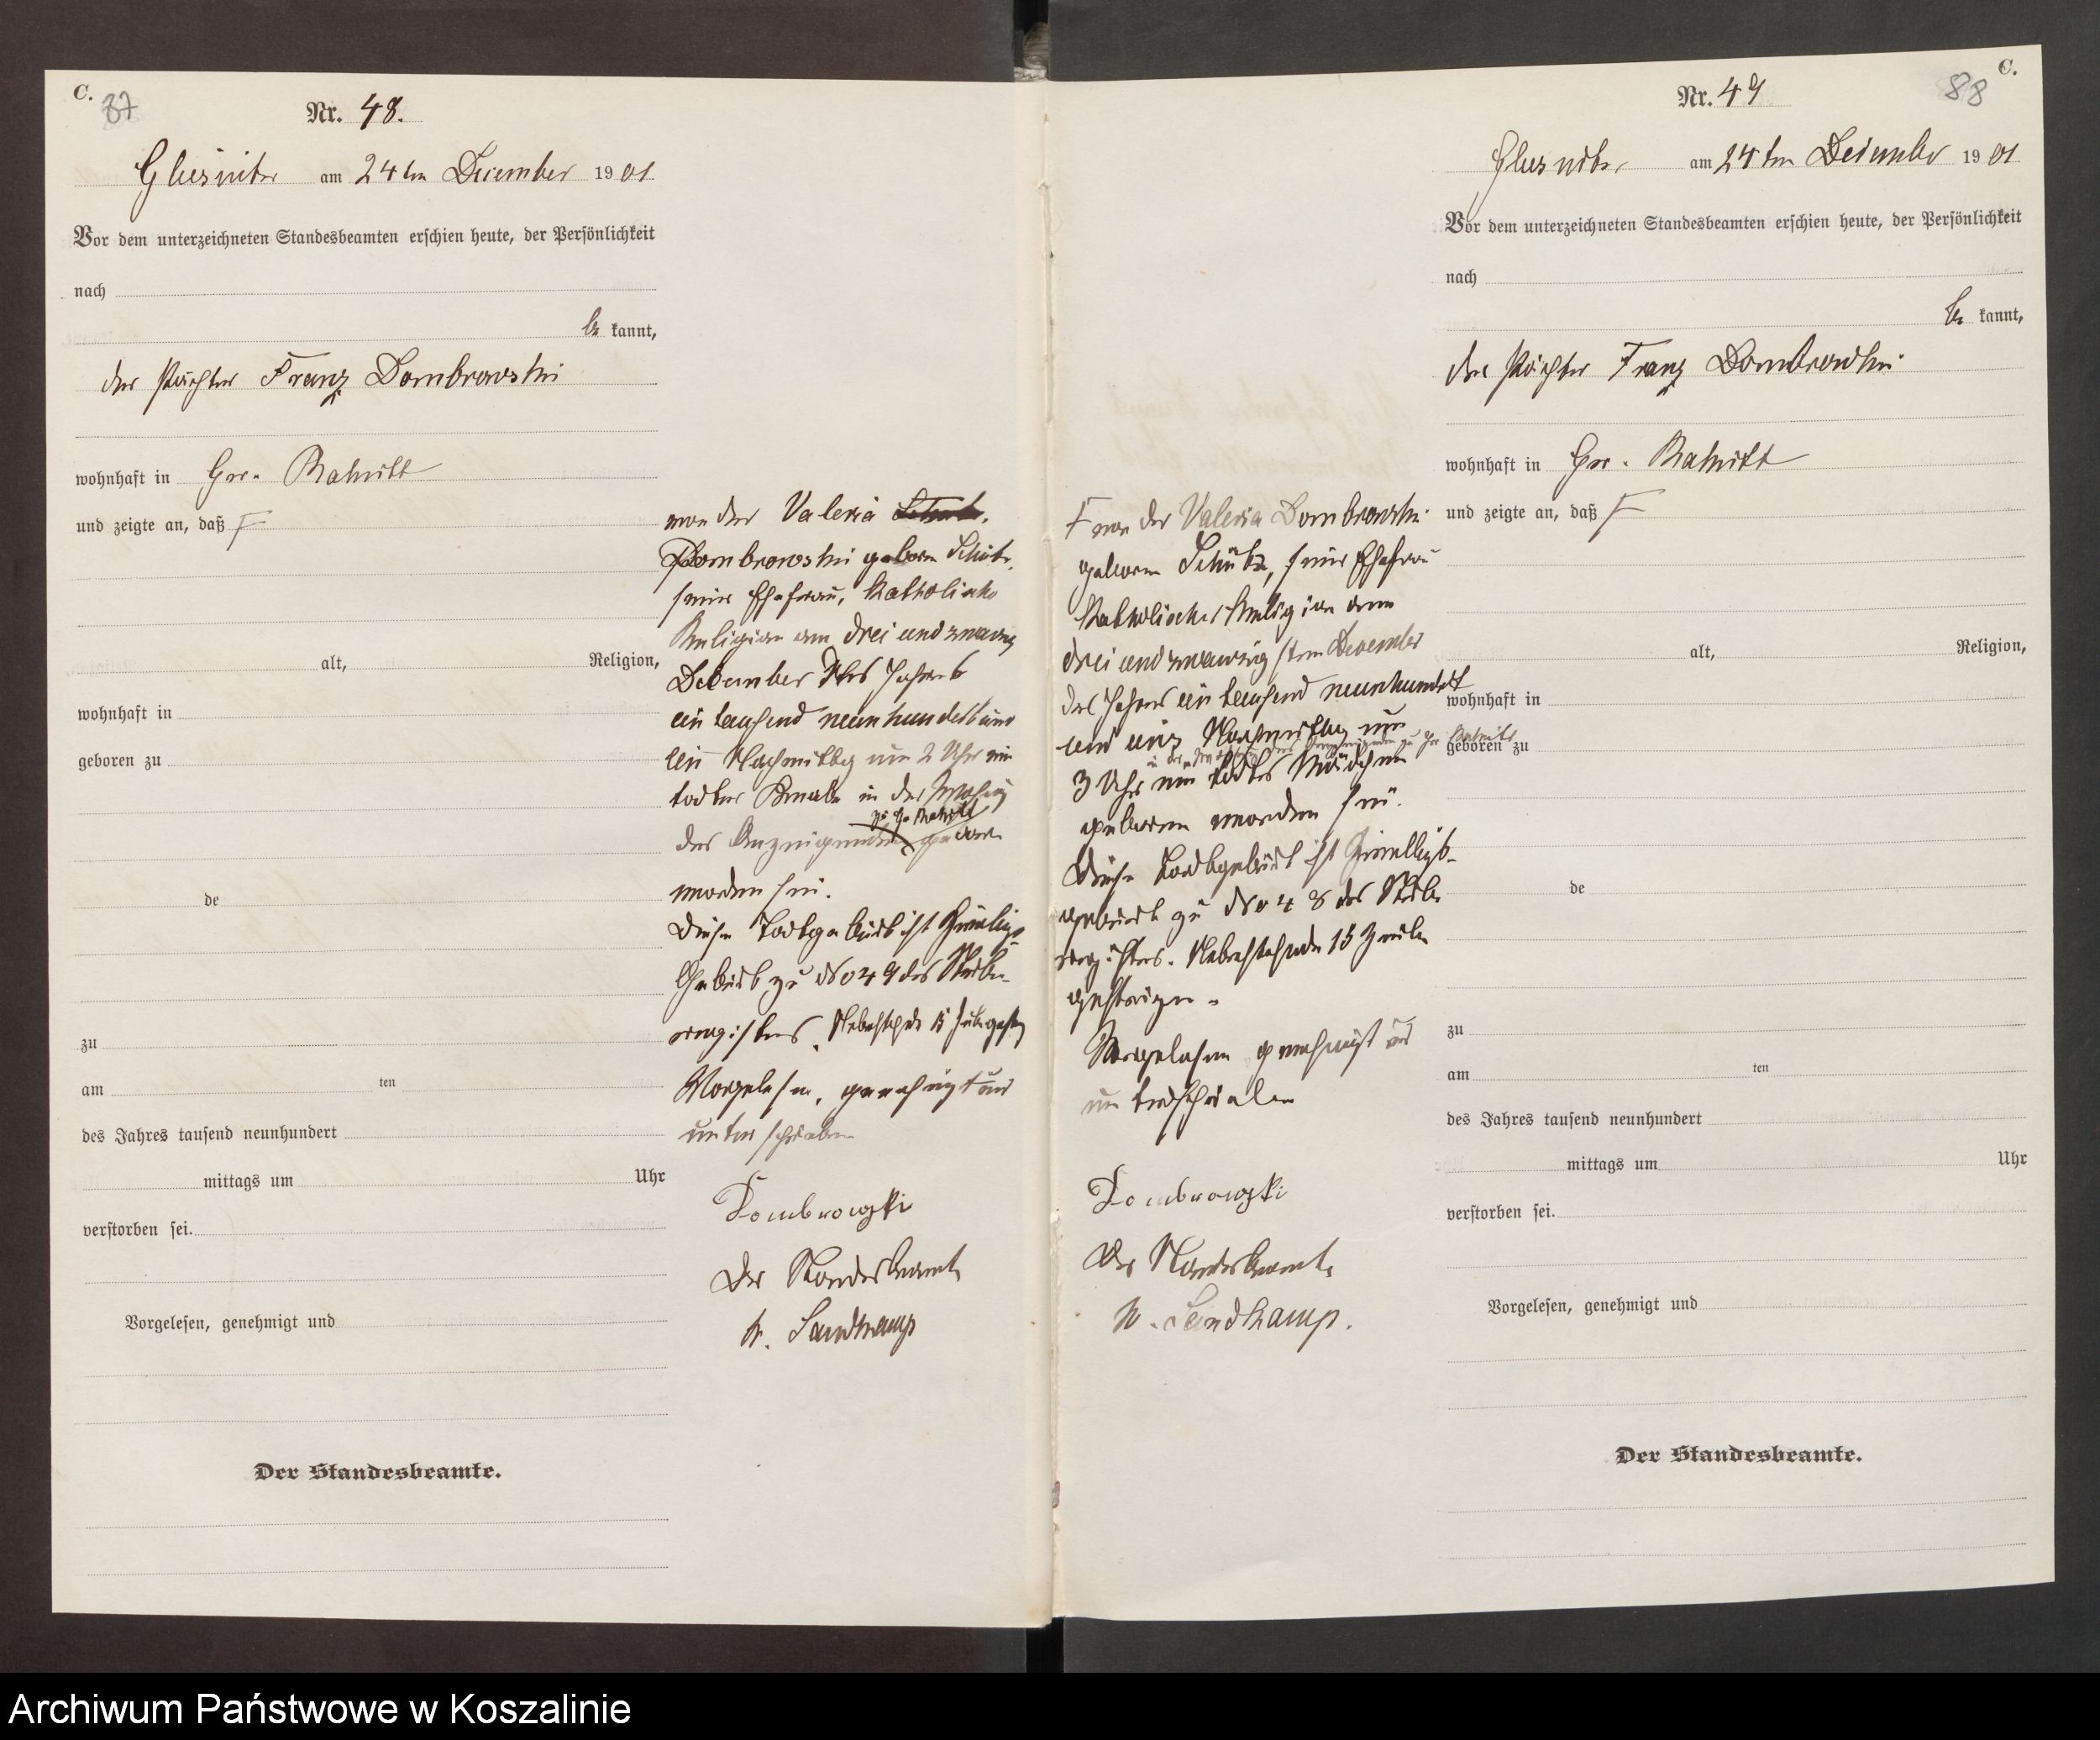 C.
87
Nr. 48.
Glusnitz am 24ten December 1901
Vor dem unterzeichneten Standesbeamten erschien heute, der Persönlichkeit
nach
be kannt,
der Pächter Franz Dombrowski
wohnhaft in Gr. Rakitt
und zeigte an, daß F
alt, Religion,
wohnhaft in
geboren zu
de
zu
am ten
des Jahres tausend neunhundert
mittags um Uhr
verstorben sei.
Vorgelesen, genehmigt und
Der Standesbeamte.
von der Valeria
Dombrowski geboren Schütz,
seiner Ehefrau, katholische
Religion am drei und zwanzig
December des Jahres
ein tausend neunhundert und
ein Nachmittag um 2 Uhr ein
todter Knabe in der Wohnung
zu Gr Rakitt
des Anzeigenden geboren
worden sei.
Diese Todtgeburt ist Zwillings
Geburt zu No 49 des Sterbe-
registers. Nebenstehende 15 Zeilen gestr
Vorgelesen, genehmigt und
unterschrieben
Dombrowzki
Der Standesbeamte
W. Sandkamp
C.
88
Nr. 49
Glusnitz, am 24ten December 1901
Vor dem unterzeichneten Standesbeamten erschien heute, der Persönlichkeit
nach
be kannt,
der Pächter Franz Dombrowski
wohnhaft in Gr. Rakitt
und zeigte an, daß F
alt, Religion,
wohnhaft in
geboren zu
de
zu
am ten
des Jahres tausend neunhundert
mittags um Uhr
verstorben sei.
Vorgelesen, genehmigt und
Der Standesbeamte.
F von der Valeria Dombrowski
geboren Schütz, seiner Ehefrau
katholischer Religion am
drei und zwanzigsten December
des Jahres ein tausend neunhundert
und eins Nachmittag um
in der Wohnung des Anzeigenden zu Gr Rakitt
3 Uhr ein todtes Mädchen
geboren worden sei.
Diese Todtgeburt ist Zwillings-
geburt zu No 48 des Sterbe
registers. Nebenstehende 15 Zeilen
gestrichen.
Vorgelesen genehmigt und
unterschrieben
Dombrowzki
Der Standesbeamte
W. Sandkamp.
Archiwum Państwowe w Koszalinie